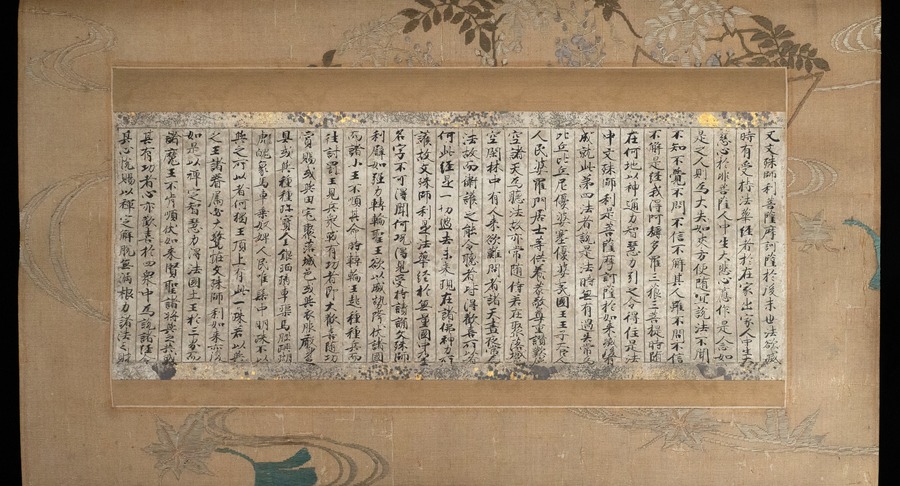 又文殊師利菩薩摩訶薩於後末世法欲滅
時有受持法華經者於在家出家人中生大
慈心於非菩薩人中生大悲心應作是念如
是之人則為大失如來方便隨宜說法不聞
不知不覺不問不信不解其人雖不問不信
不解是經我得阿耨多羅三藐三菩提時隨
在何地以神通力智慧力引之令得住是法
中文殊師利是菩薩摩訶薩於如來滅後有
成就此第四法者說是法時無有過失常為
比丘比丘尼優婆塞優婆夷國王王子大臣
人民婆羅門居士等供養恭敬尊重讚歎虛
空諸天為聽法故亦常隨侍若在聚落城邑
空閑林中有人來欲難問者諸天晝夜常為
法故而衛護之能令聽者皆得歡喜所以者
何此經是一切過去未來現在諸佛神力所
護故文殊師利是法華經於無量國中乃至
名字不可得聞何況得見受持讀誦文殊師
利譬如強力轉輪聖王欲以威勢降伏諸國
而諸小王不順其命時轉輪王起種種兵而
往討罰王見兵眾戰有功者即大歡喜隨功
賞賜或與田宅聚落城邑或與衣服嚴身之
具或與種種珍寶金銀琉璃車渠馬瑙珊瑚
虎魄象馬車乘奴婢人民唯髻中明珠不以
與之所以者何獨王頂上有此一珠若以與
之王諸眷屬必大驚怪文殊師利如來亦復
如是以禪定智慧力得法國土王於三界而
諸魔王不肯順伏如來賢聖諸將與之共戰
其有功者心亦歡喜於四眾中為說諸經令
其心悅賜以禪定解脫無漏根力諸法之財